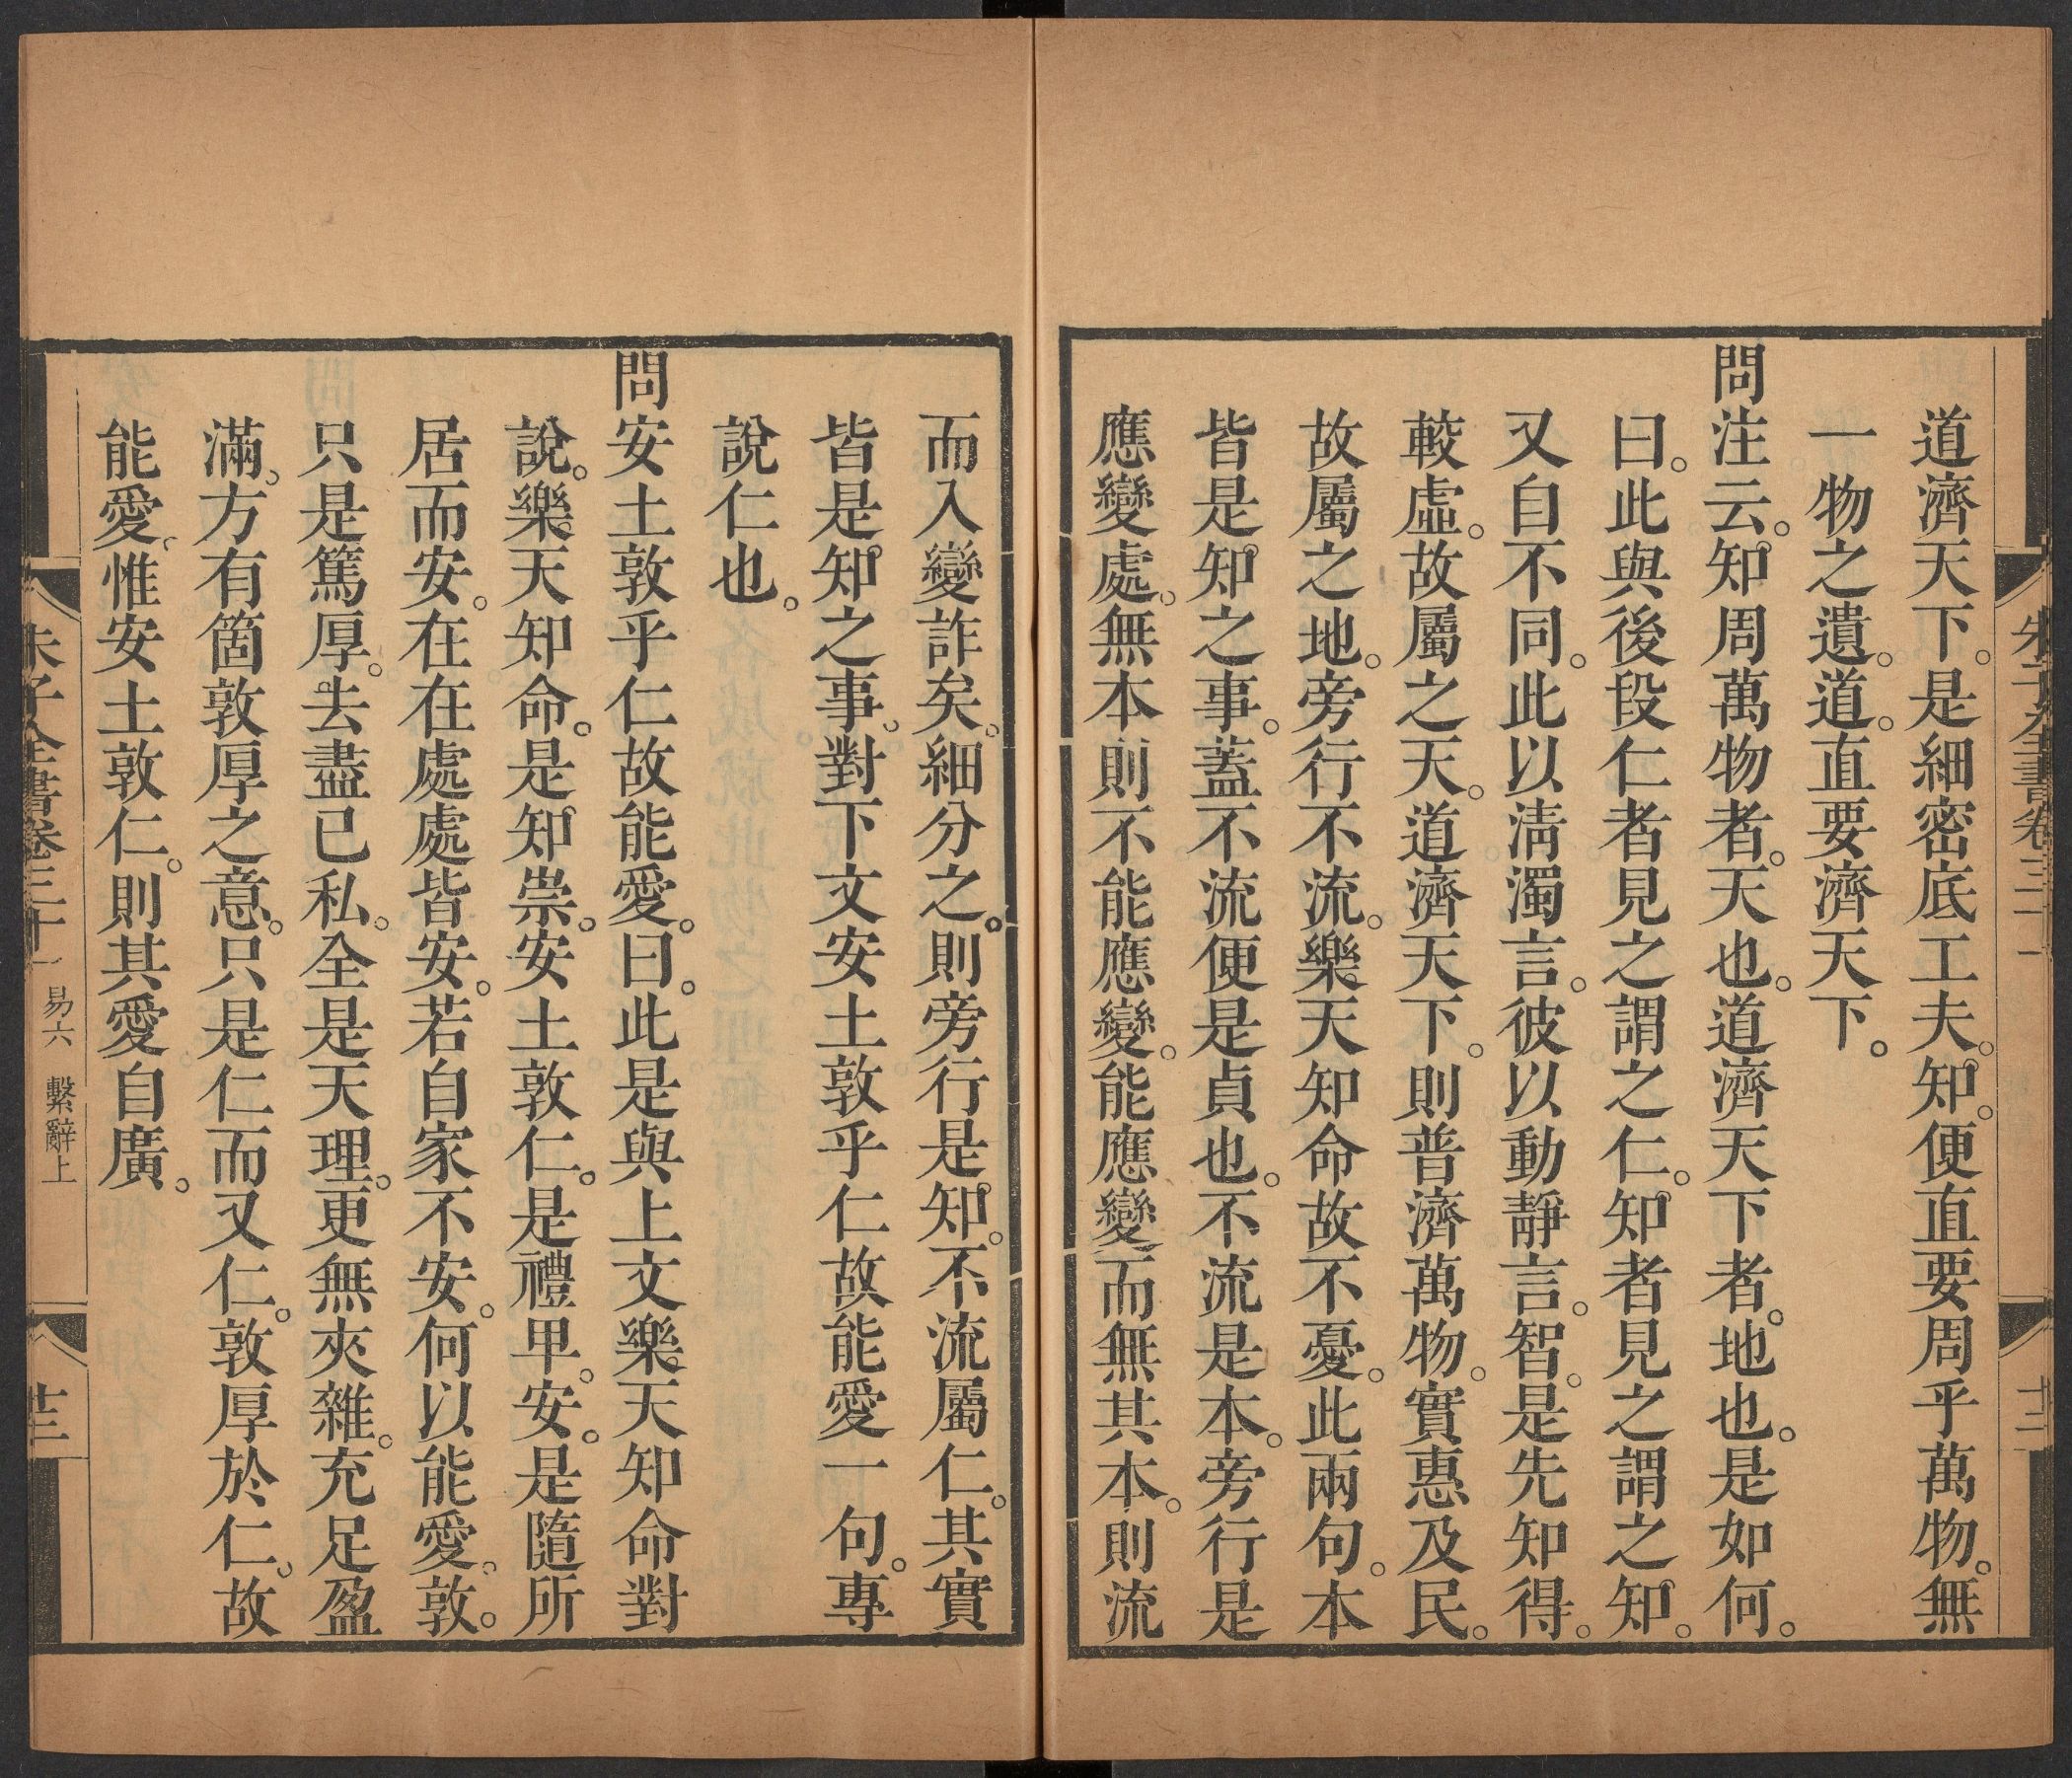 道濟天下。是細密底工夫。知。便直要周乎萬物。無
一物之遺。道。直要濟天下。
問注云。知周萬物者。天也。道濟天下者。地也。是如何。
曰。此與後段仁者見之謂之仁。知者見之謂之知。
又自不同。此以淸濁言。彼以動靜言。智。是先知得。
較虛。故屬之天。道濟天下。則普濟萬物。實惠及民。
故屬之地。旁行不流。樂天知命故不憂。此兩句。本
皆是知之事。蓋不流便是貞也。不流是本。旁行是
應變處。無本則不能應變。能應變而無其本。則流
而入變詐矣。細分之。則旁行是知。不流屬仁。其實
皆是知之事。對下文安土敦乎仁故能愛一句。專
說仁也。
問安土敦乎仁故能愛。曰。此是與上文樂天知命對
說。樂天知命。是知崇。安土敦仁。是禮卑。安。是隨所
居而安。在在處處皆安。若自家不安。何以能愛。敦。
只是篤厚。去盡己私。全是天理。更無夾雜。充足盈
滿。方有箇敦厚之意。只是仁而又仁。敦厚於仁。故
能愛。惟安土敦仁。則其愛自廣。
朱子全書卷三十一 易六 繫辭上